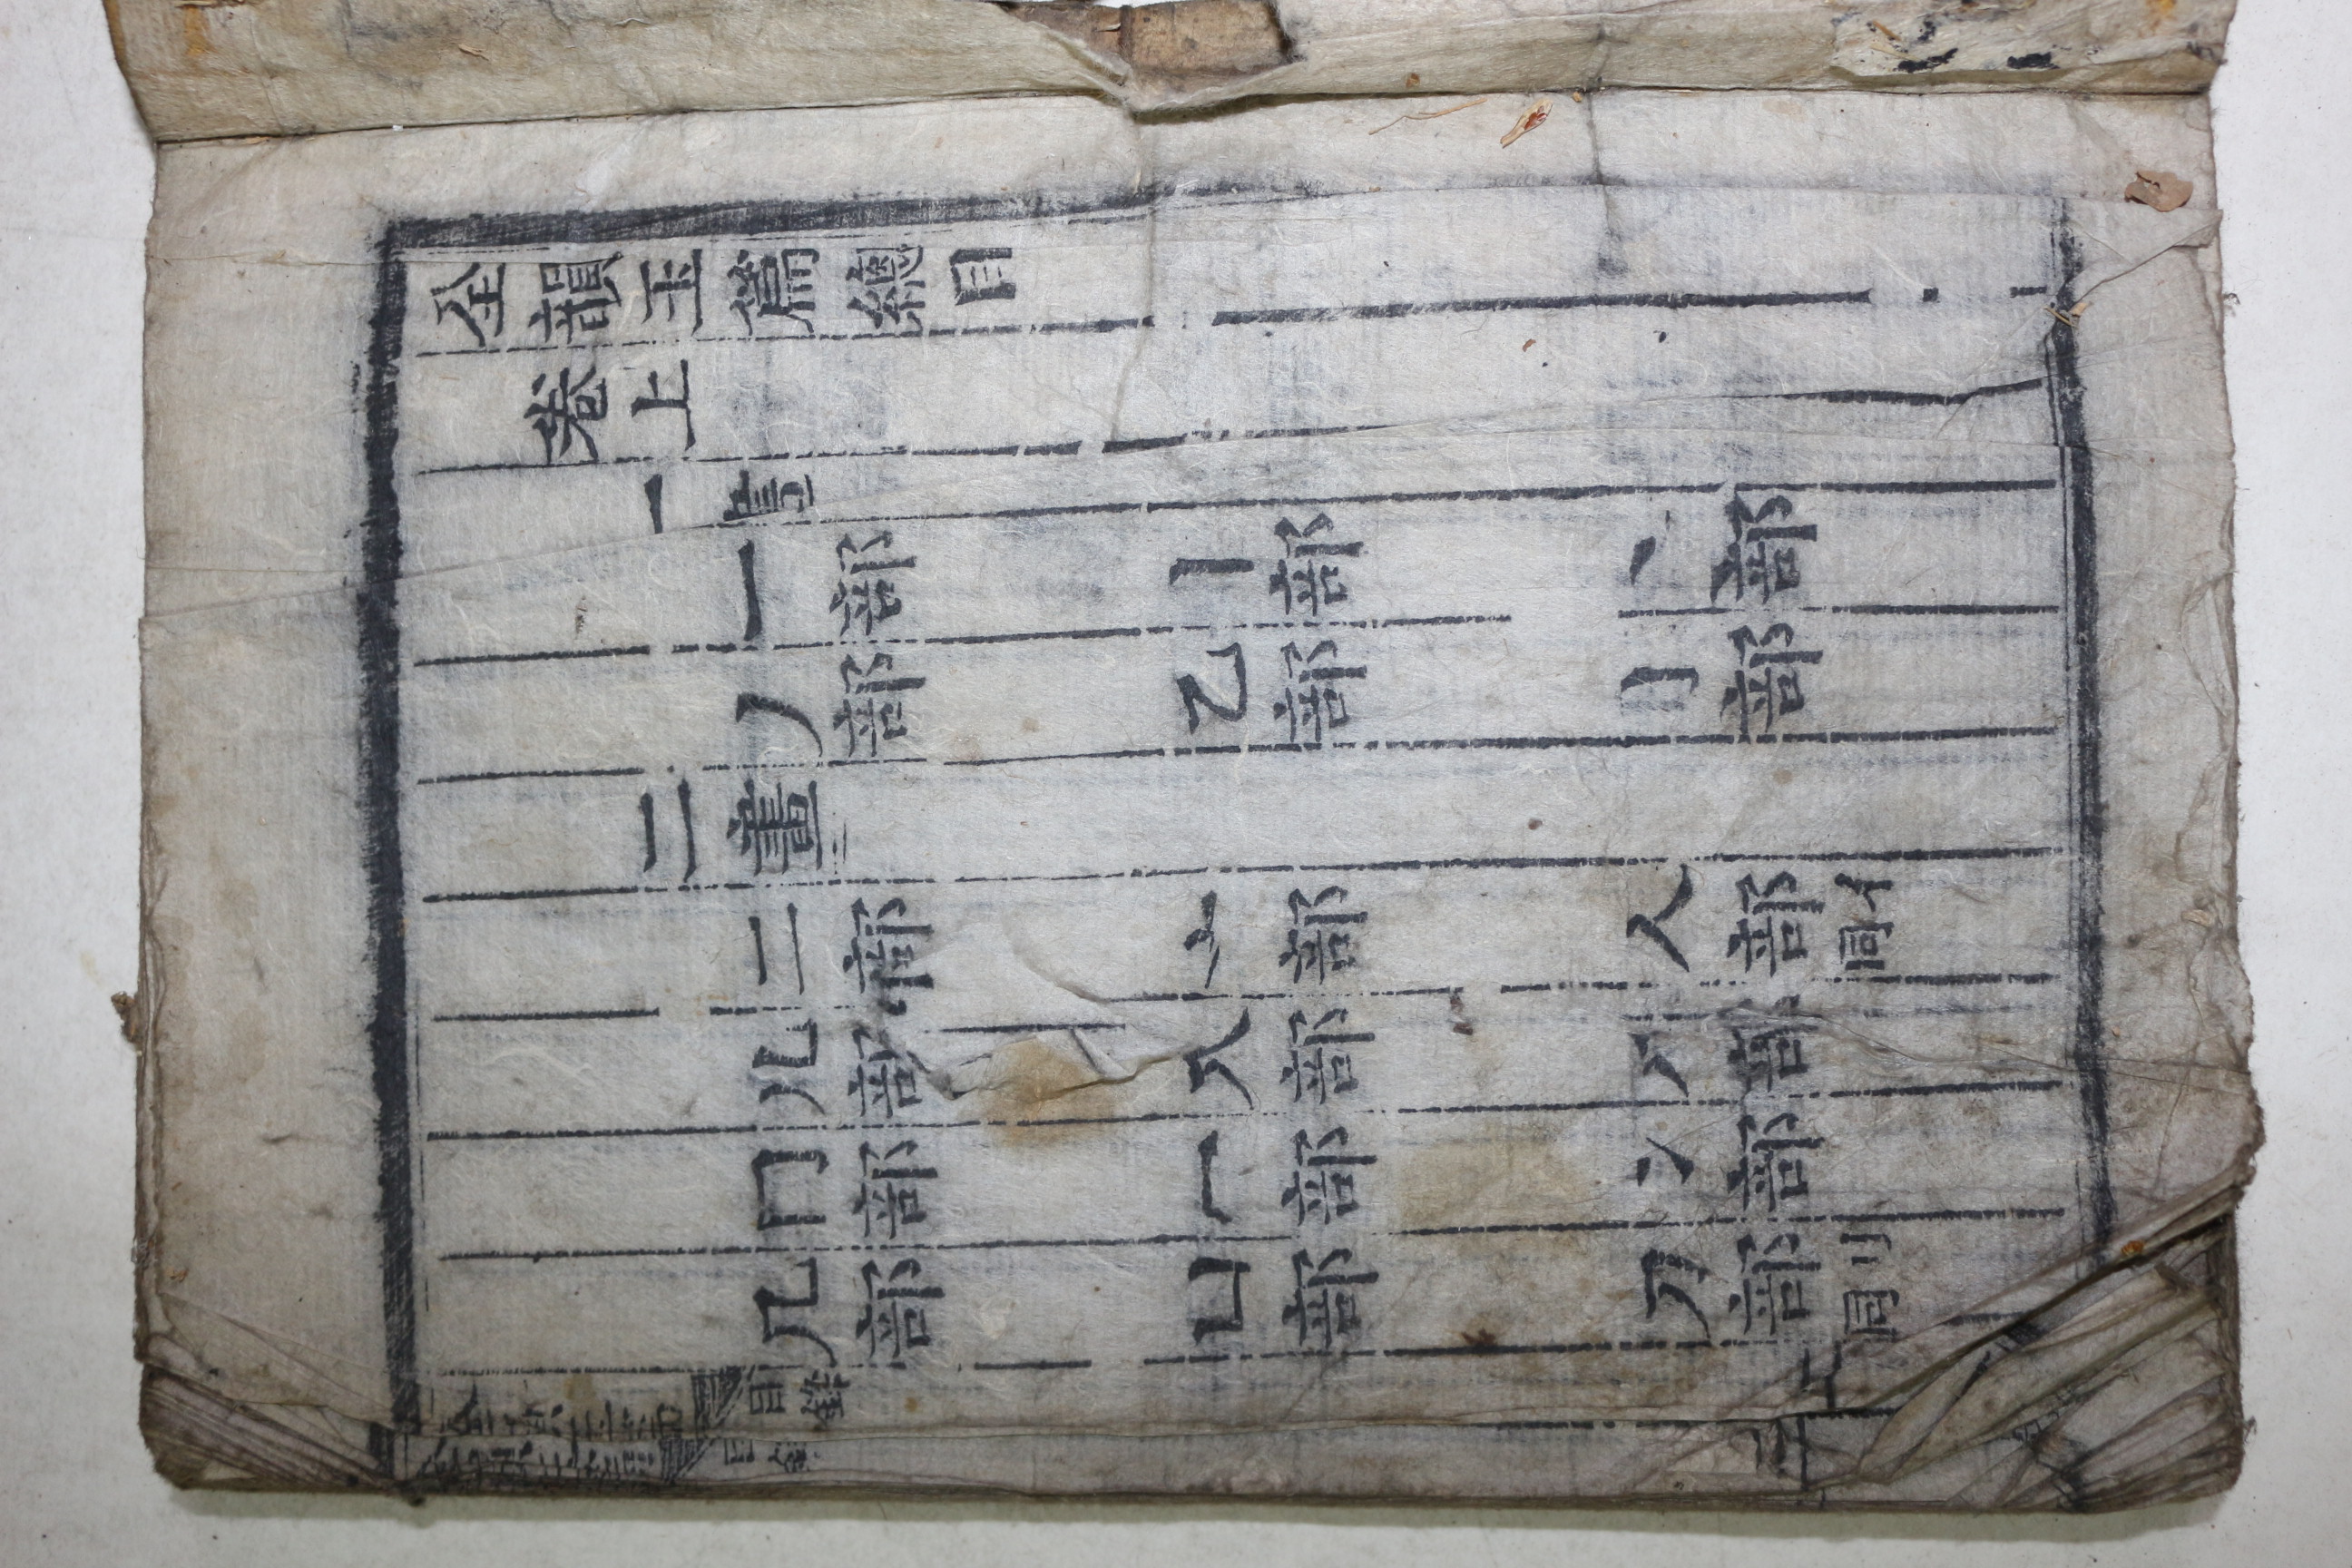 全韻玉篇總目
卷上
一畫
一部 丨部 丶部
丿部 乙部 亅部
二畫
二部 亠部 人部 同亻
儿部 入部 八部
冂部 冖部 冫部
几部 凵部 刀部 同刂
全韻玉篇 目錄